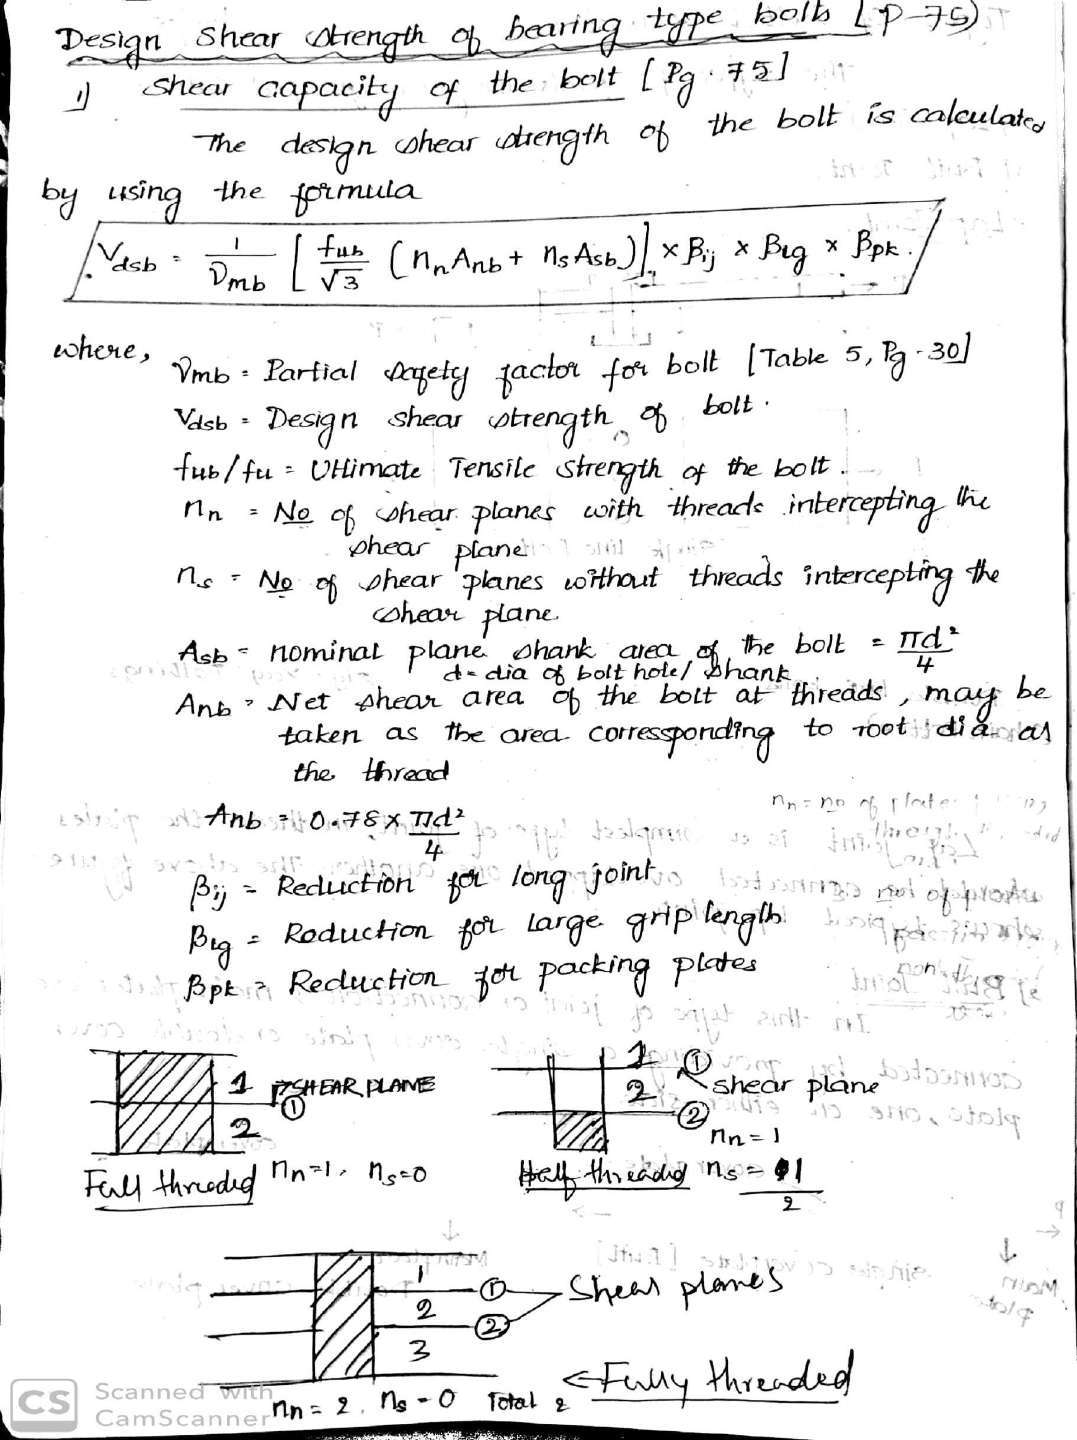 Design Shear strength of bearing type bolts [P-75)
1) Shear capacity of the bolt [Pg. 75]
The design shear strength of the bolt is calculated
by using the formula
Vdsb = 1/γmb [fub/√3 (nnAnb + nsAsb)] × βij × βlg × βpk.
where,
γmb = Partial safety factor for bolt [Table 5, Pg-30]
Vdsb = Design shear strength of bolt.
fub/fu = Ultimate Tensile strength of the bolt.
nn = No of shear planes with threads intercepting the
shear plane
ns = No of shear planes without threads intercepting the
shear plane.
Asb = nominal plane shank area of the bolt = πd²/4
d = dia of bolt hole/shank
Anb = Net shear area of the bolt at threads, may be
taken as the area corresponding to root dia as
the thread
Anb = 0.78 × πd²/4
βij = Reduction for long joint
βlg = Reduction for Large grip length
βpk = Reduction for packing plates
1 SHEAR PLANE
①
2
Full threaded nn=1, ns=0
1 ①
2 shear plane
②
nn=1
Half threaded ns = 1
2
1 ①
Shear planes
2 ②
3
← Fully threaded
nn = 2, ns = 0 Total 2
CS Scanned with
CamScanner